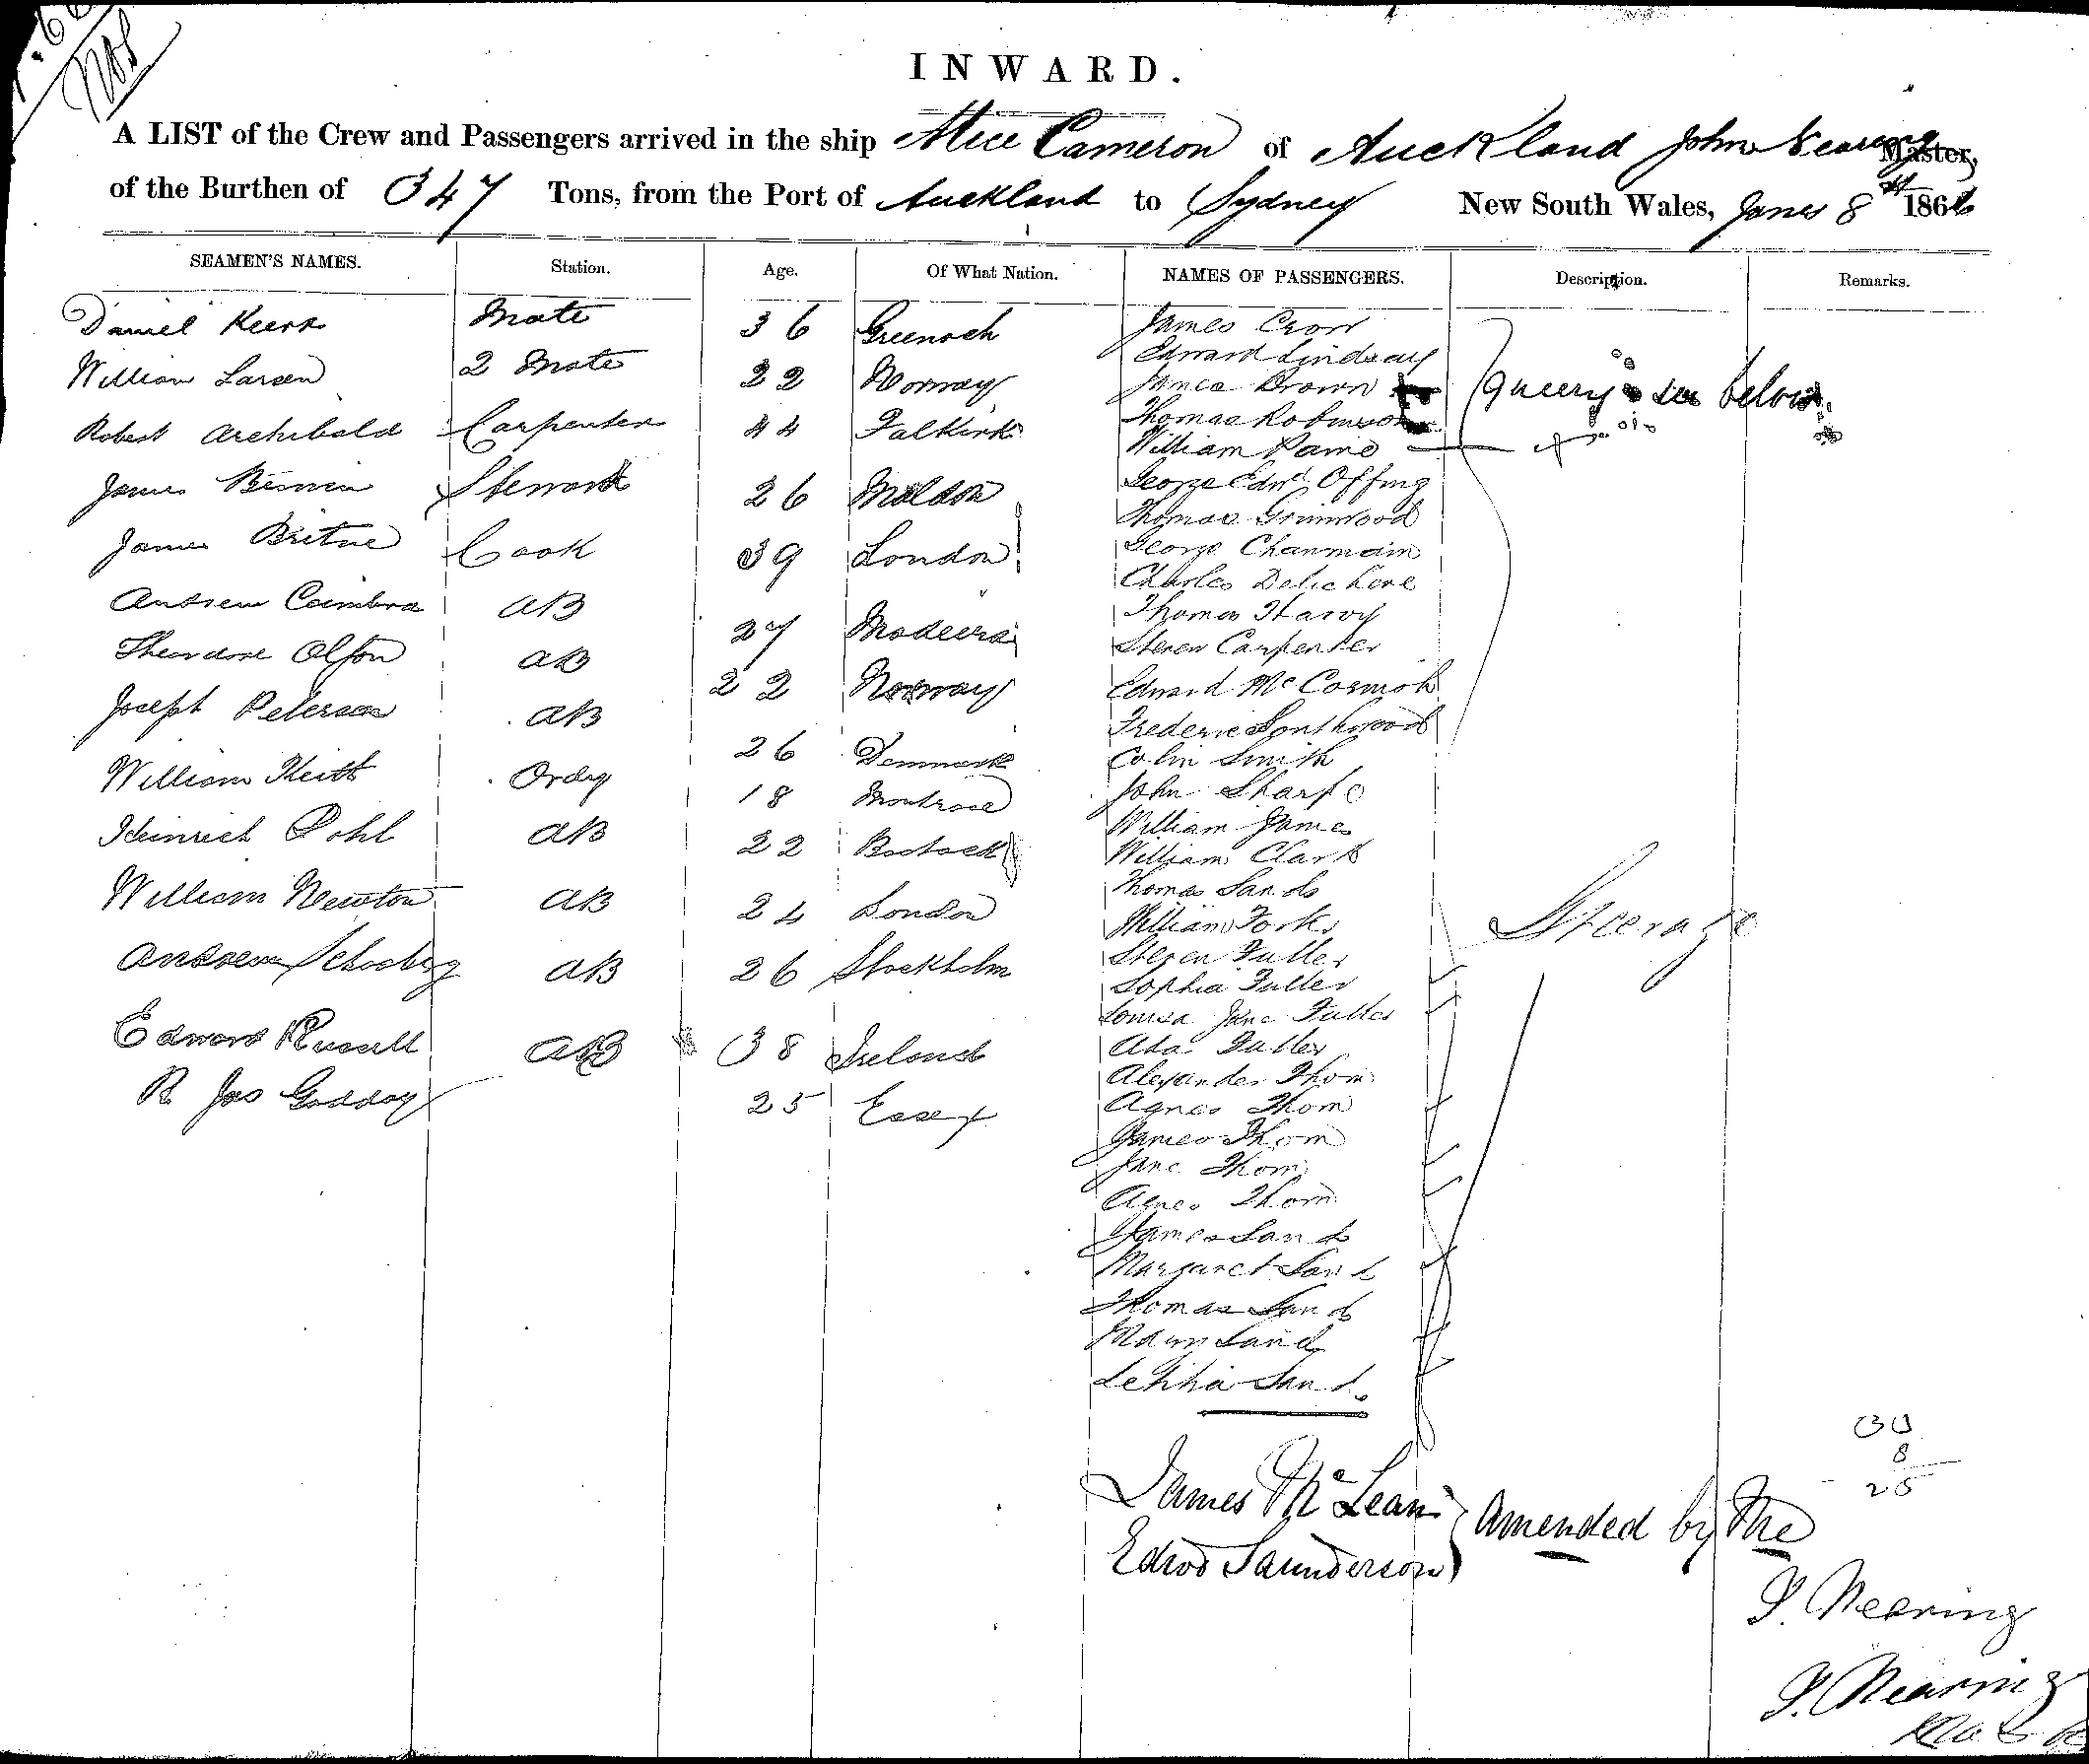 INWARD.
A LIST of the Crew and Passengers arrived in the ship Alice Cameron of Auckland John Nearing Master,
of the Burthen of 347 Tons, from the Port of Auckland to Sydney New South Wales, 8 186
SEAMEN'S NAMES. Station. Age. Of What Nation. NAMES OF PASSENGERS. Description. Remarks.
Daniel Mate 36 Greenock
William Larsen 2 Mate 22 Norway
Robert Archibald Carpenter 44 Falkirk
James Steward 26 Maldon
James Cook 39 London
Andrew Coimbra AB 27 Madeira
Theodore AB 22 Norway
Joseph Peterson AB 26 Denmark
William Keith Ordy 18 Montrose
Heinrich Pohl AB 22
William Newton AB 24 London
Andrew AB 26 Stockholm
Edward Russell AB 38 Ireland
R Jas 25 Essex
James Crow
Edward Lindsay
James Brown
Thomas Robinson
William
George Edwd Offing
Thomas Grimwood
George
Charles
Thomas Harvy
Steven Carpenter
Edward McCormok
Frederic Southwood
Colin Smith
John Sharpe
William James
William Clark
Thomas Sands
William
Steven Fuller
Sophia Fuller
Louisa Jane Fuller
Ada Fuller
Alexander Thom
Agnes Thom
James Thom
Jane Thom
Agnes Thom
James Sands
Margaret Sands
Thomas Sands
Sands
Letitia Sands
queery see below
Steerage
James McLean
Edwd Saunderson
Amended by Me
J. Nearing
J. Nearing
8
25